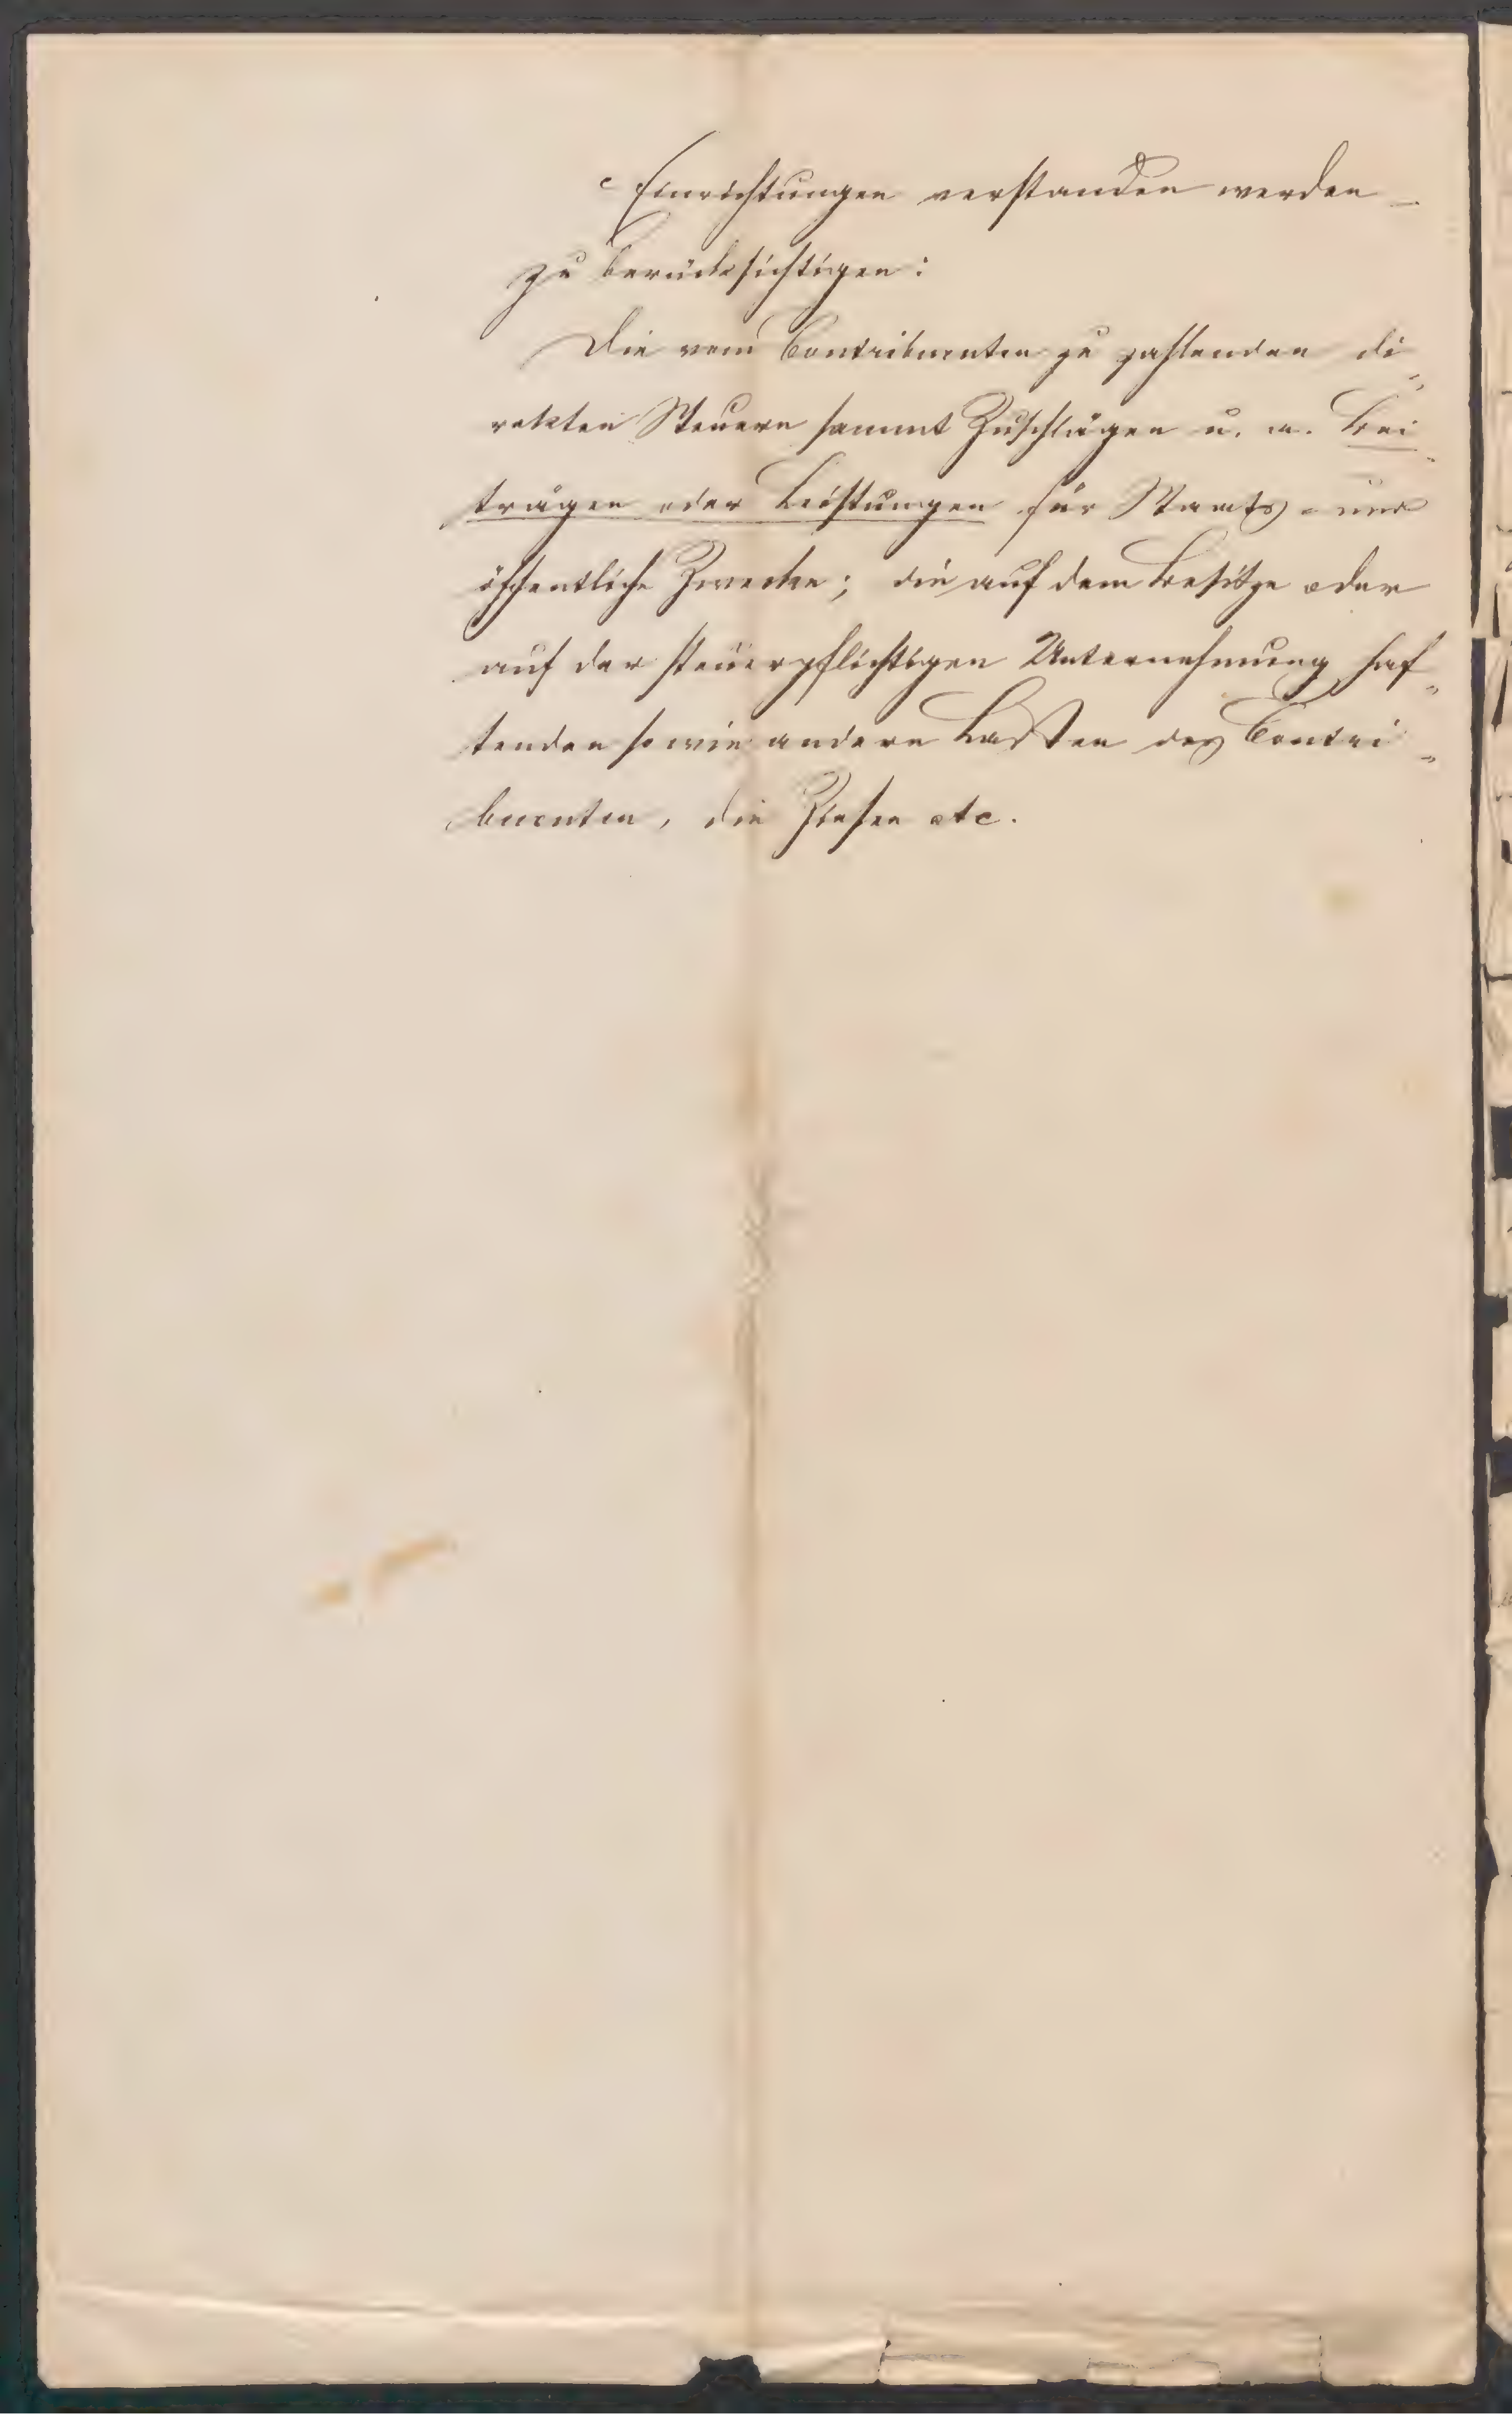 Einrichtungen verstanden werden –
zu berücksichtigen:
Die vom Contribuenten zu zahlenden di„
rekten Steuern sammt Zuschlägen u. a. Bei„
trägen oder Leistungen für Staats- und
öffentliche Zwecke; die auf dem Besitze oder
auf der steuerpflichtigen Unternehmung haf„
tenden sowie andern Lasten des Contri„
buenten, die Zinsen etc.